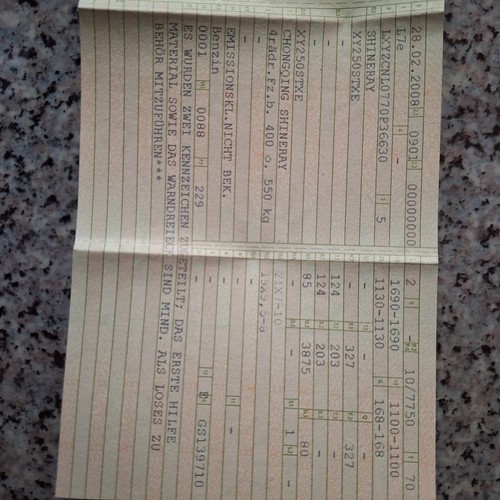 28.02.2008 0901 00000000 2 -
L7e - 10/7750 70
1690-1690 1100-1100
LXYZCNL0770P36630 5 1130-1130 168-168
SHINERAY - -
XY250STXE 327 327
- 124 203 -
- 124 203 -
XY250STXE 85 3875 80
CHONGQING SHINERAY - 1 -
4rädr.Fz.b. 400 o. 550 kg 21X7-10
- -
- -
EMISSIONSKL.NICHT BEK. - -
Benzin -
0001 0088 229 - B GS139710
ES WURDEN ZWEI KENNZEICHEN ZUGETEILT; DAS ERSTE HILFE
MATERIAL SOWIE DAS WARNDREIECK SIND MIND. ALS LOSES ZU
BEHÖR MITZUFÜHREN***